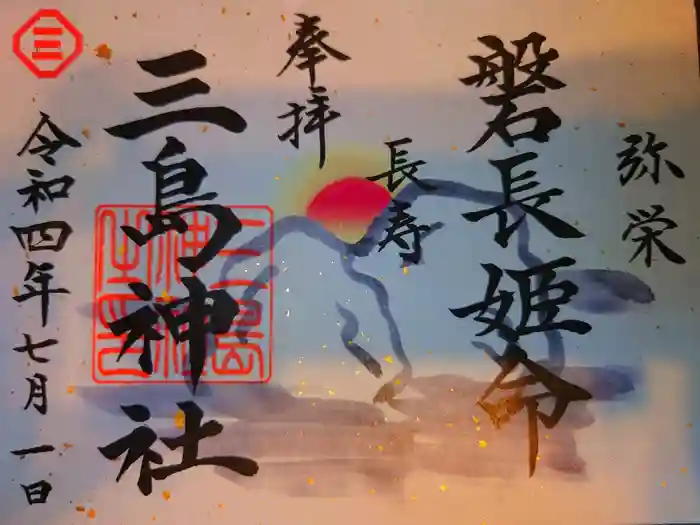 弥栄
磐長姫命
長寿
奉拝
三島神社
三島神社之印
令和四年七月一日
三